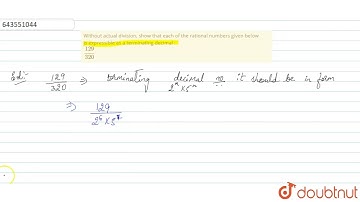 643551044
Without actual division, show that each of the rational numbers given below
is expressible as a terminating decimal.
129
320
Sol:- 129/320 ⇒ terminating decimal no it should be in form
2ⁿ×5ᵐ
⇒ 129
2⁶×5
doubtnut